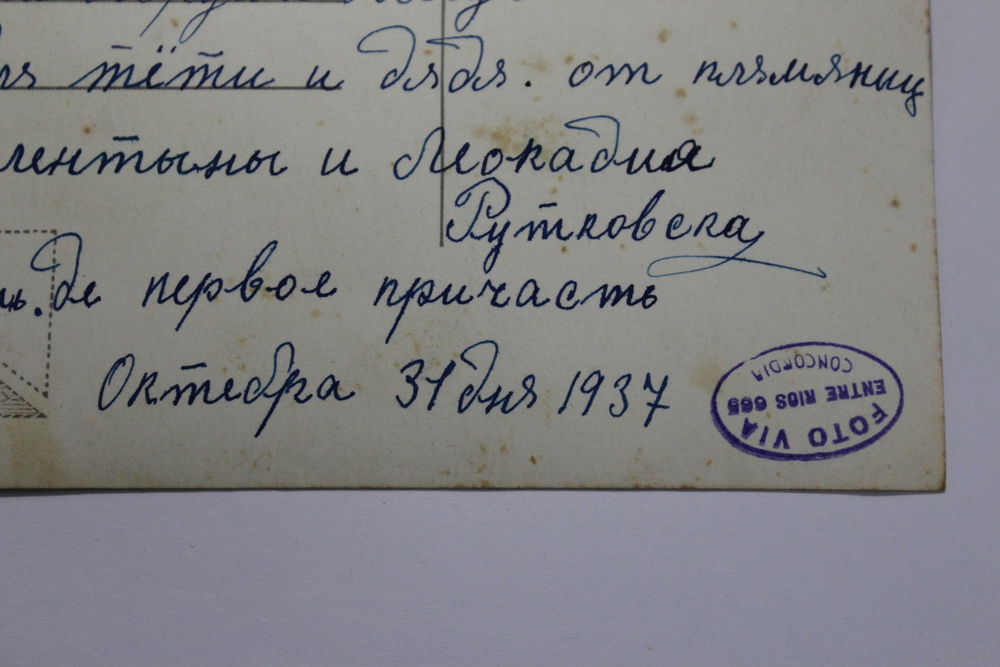 ля тёти и дядя. от плямяниц
лентыны и Леокадиа
Рутковска
де первое причасть
Октебра 31 дня 1937
FOTO VIA
ENTRE RIOS 665
CONCORDIA